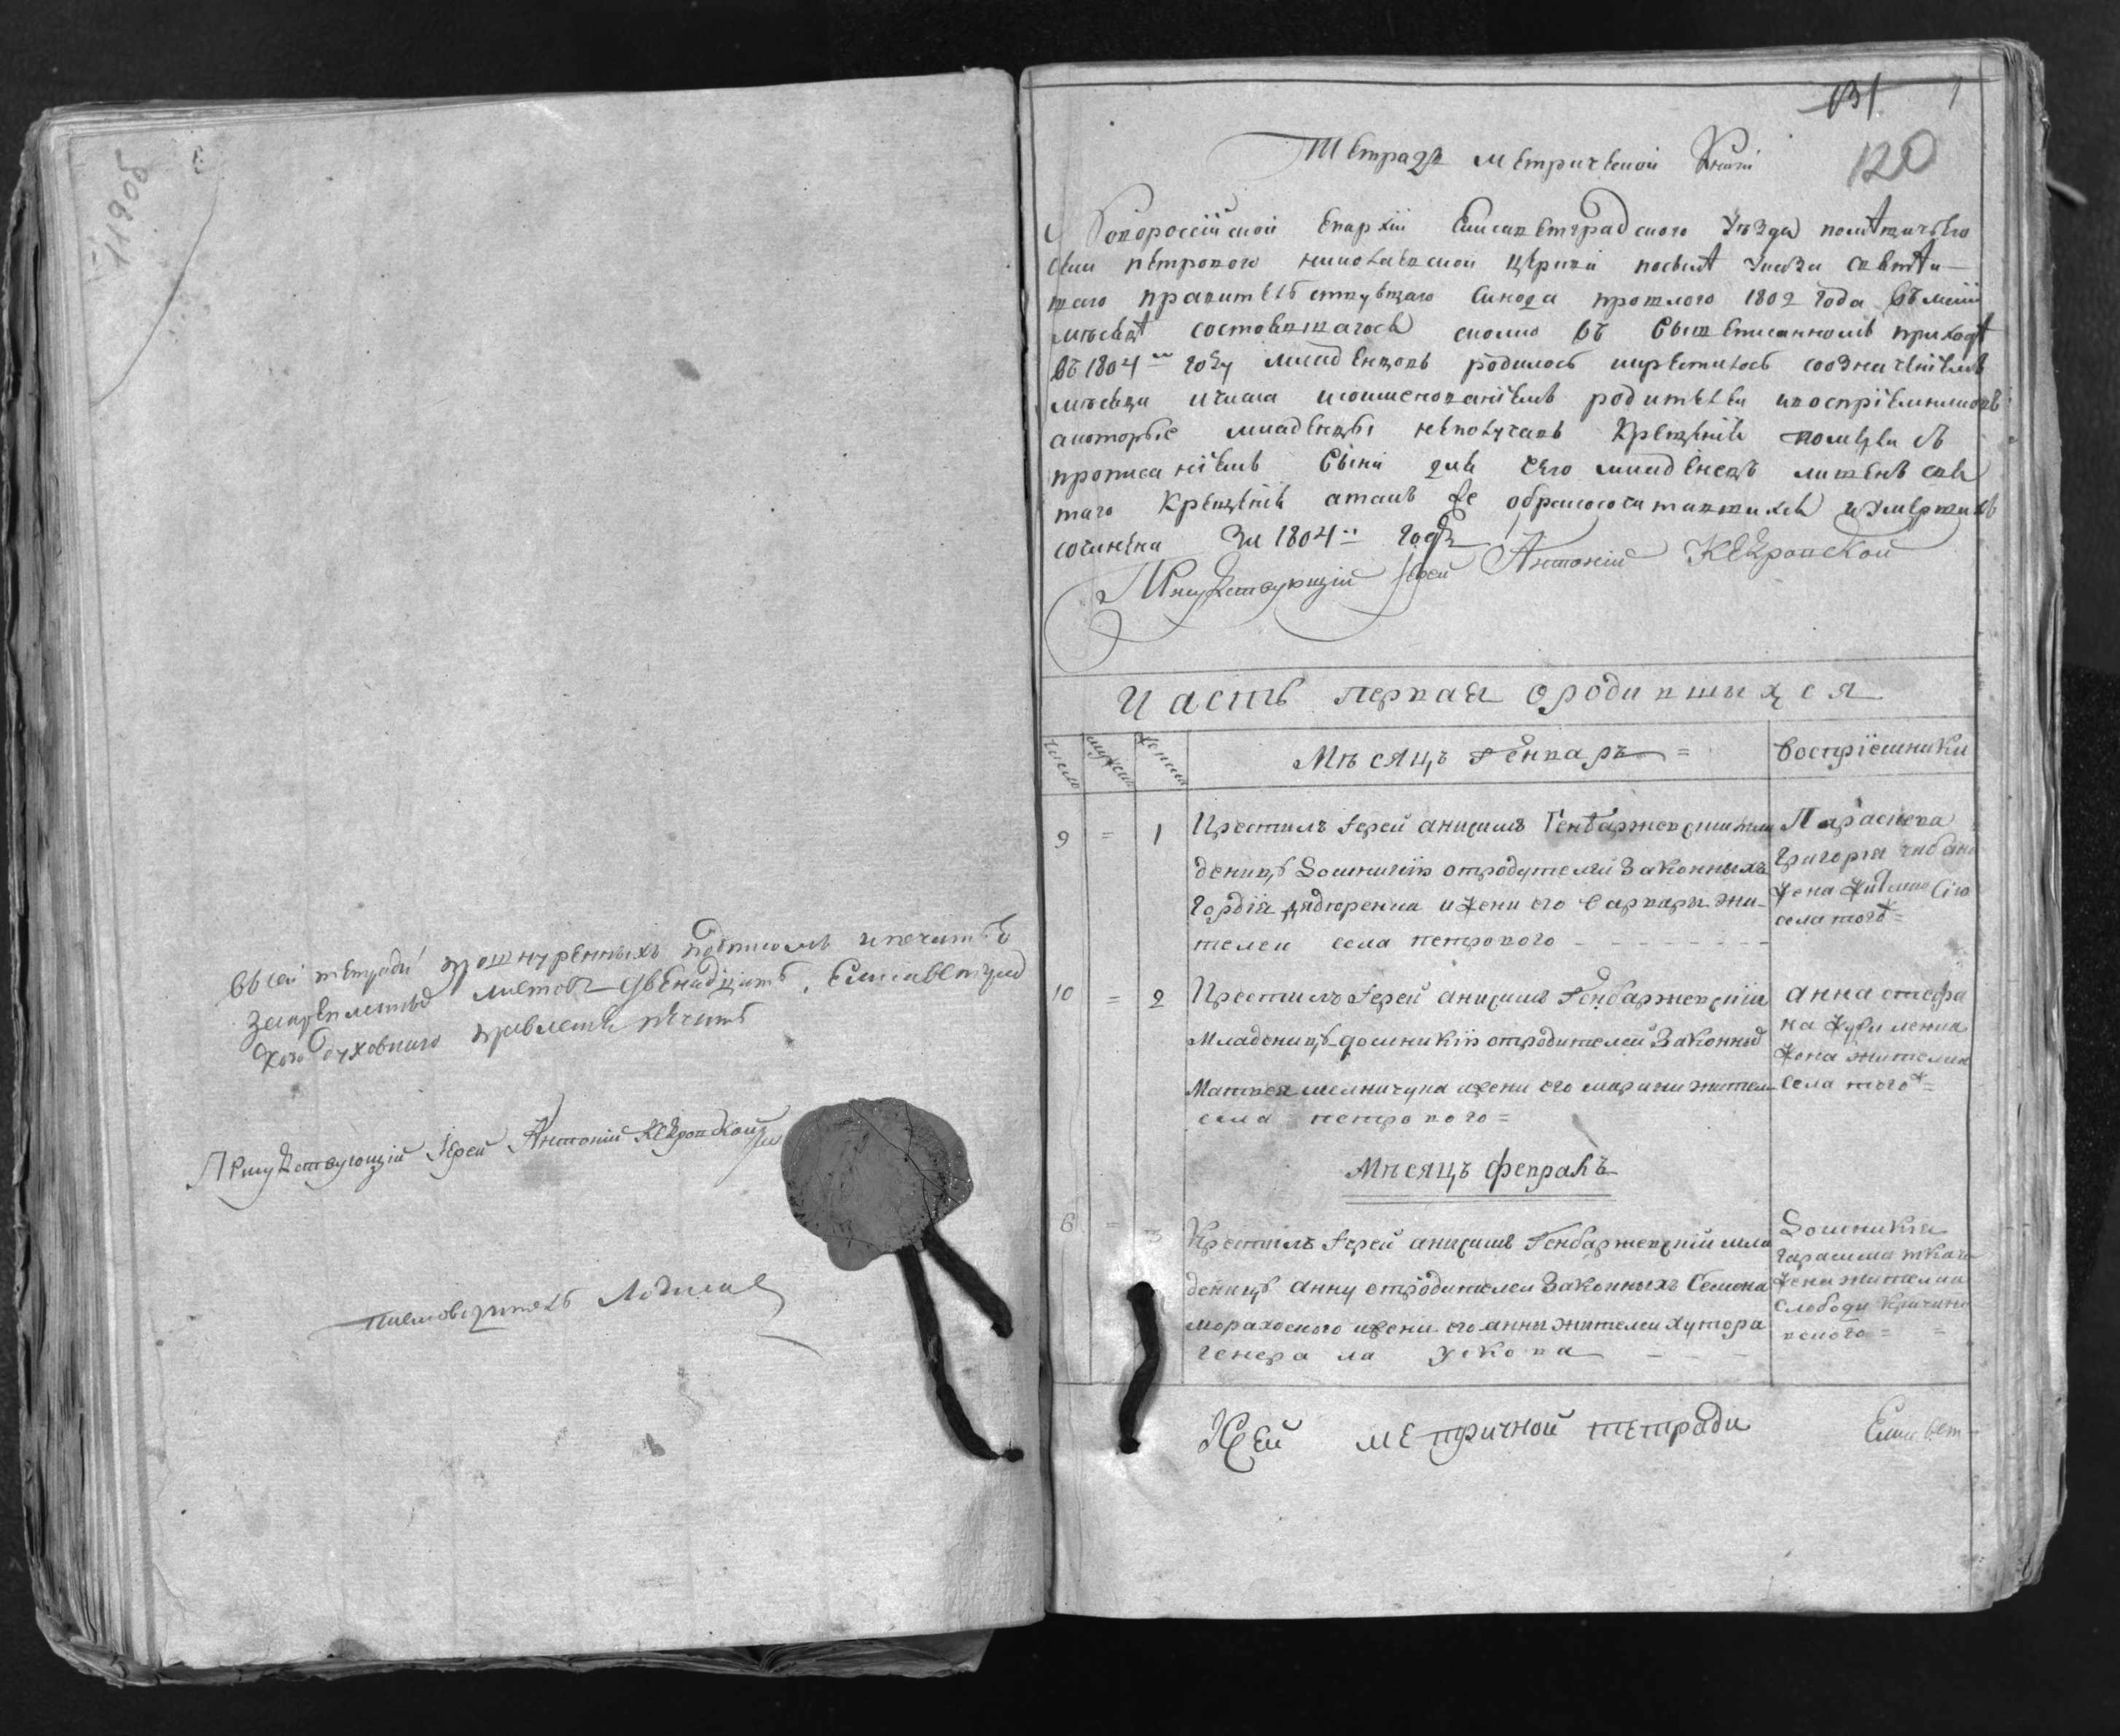 119об
Въ сей тетради прошнуренныхъ подписомъ и печатью
закрепленныхъ листовъ двенадцать. Елисаветград
ского духовнаго правления печать
Присудствующий Иерей Антоний
131 1
120
Тетрадь метрической книги
Новороссийской Епархии Елисаветградского уезда
села петрового николаевской церкви посиле указа святей
шаго правительствующаго Синода прошлого 1802 года въ маии
месяце состоявшагося сколко въ вышеписанномъ приходе
въ 1804м году младенцовъ родилось икрестилось созначениемъ
месяца ичисла ипоименованиемъ родителей ивосприемниковъ
акоторые младенцы неполучавъ крещения померли съ
прописаниемъ вини для чего младенецъ лишенъ свя
таго крещения атакъ же обракосочитавшихся иумершихъ
сочинена За 1804й годъ
Присудствующий Иерей Антоний
Часть первая ородившыхся
число мужеска женска Месяцъ Генварь = восприемники
9 = 1 Крестилъ Иерей анисимъ Генбаржевский мла
деницу Домникию отродителей Законныхъ
Гордия дядюренка ижени его варвари жи-
телей села петрового
Параскева
Григория чабана
жена жителка
села того ж =
10 = 2 Крестилъ Иерей анисимъ Генбаржевский
Младеницу домникию отродителей Законных
Матвея мелничука ижени его марини жителей
села петрового =
анна стефа
на
жена жителка
села того ж =
Месяцъ февраль
6 = 3 Крестилъ Иерей анисимъ Генбаржевский мла
деницу анну отродителей Законныхъ Семена
мораховского ижени его анни жителей хутора
генерала ускова
Домникия
гарасима ткача
жена жителка
слободи
вского =
Сей метричной тетради Елисавет-